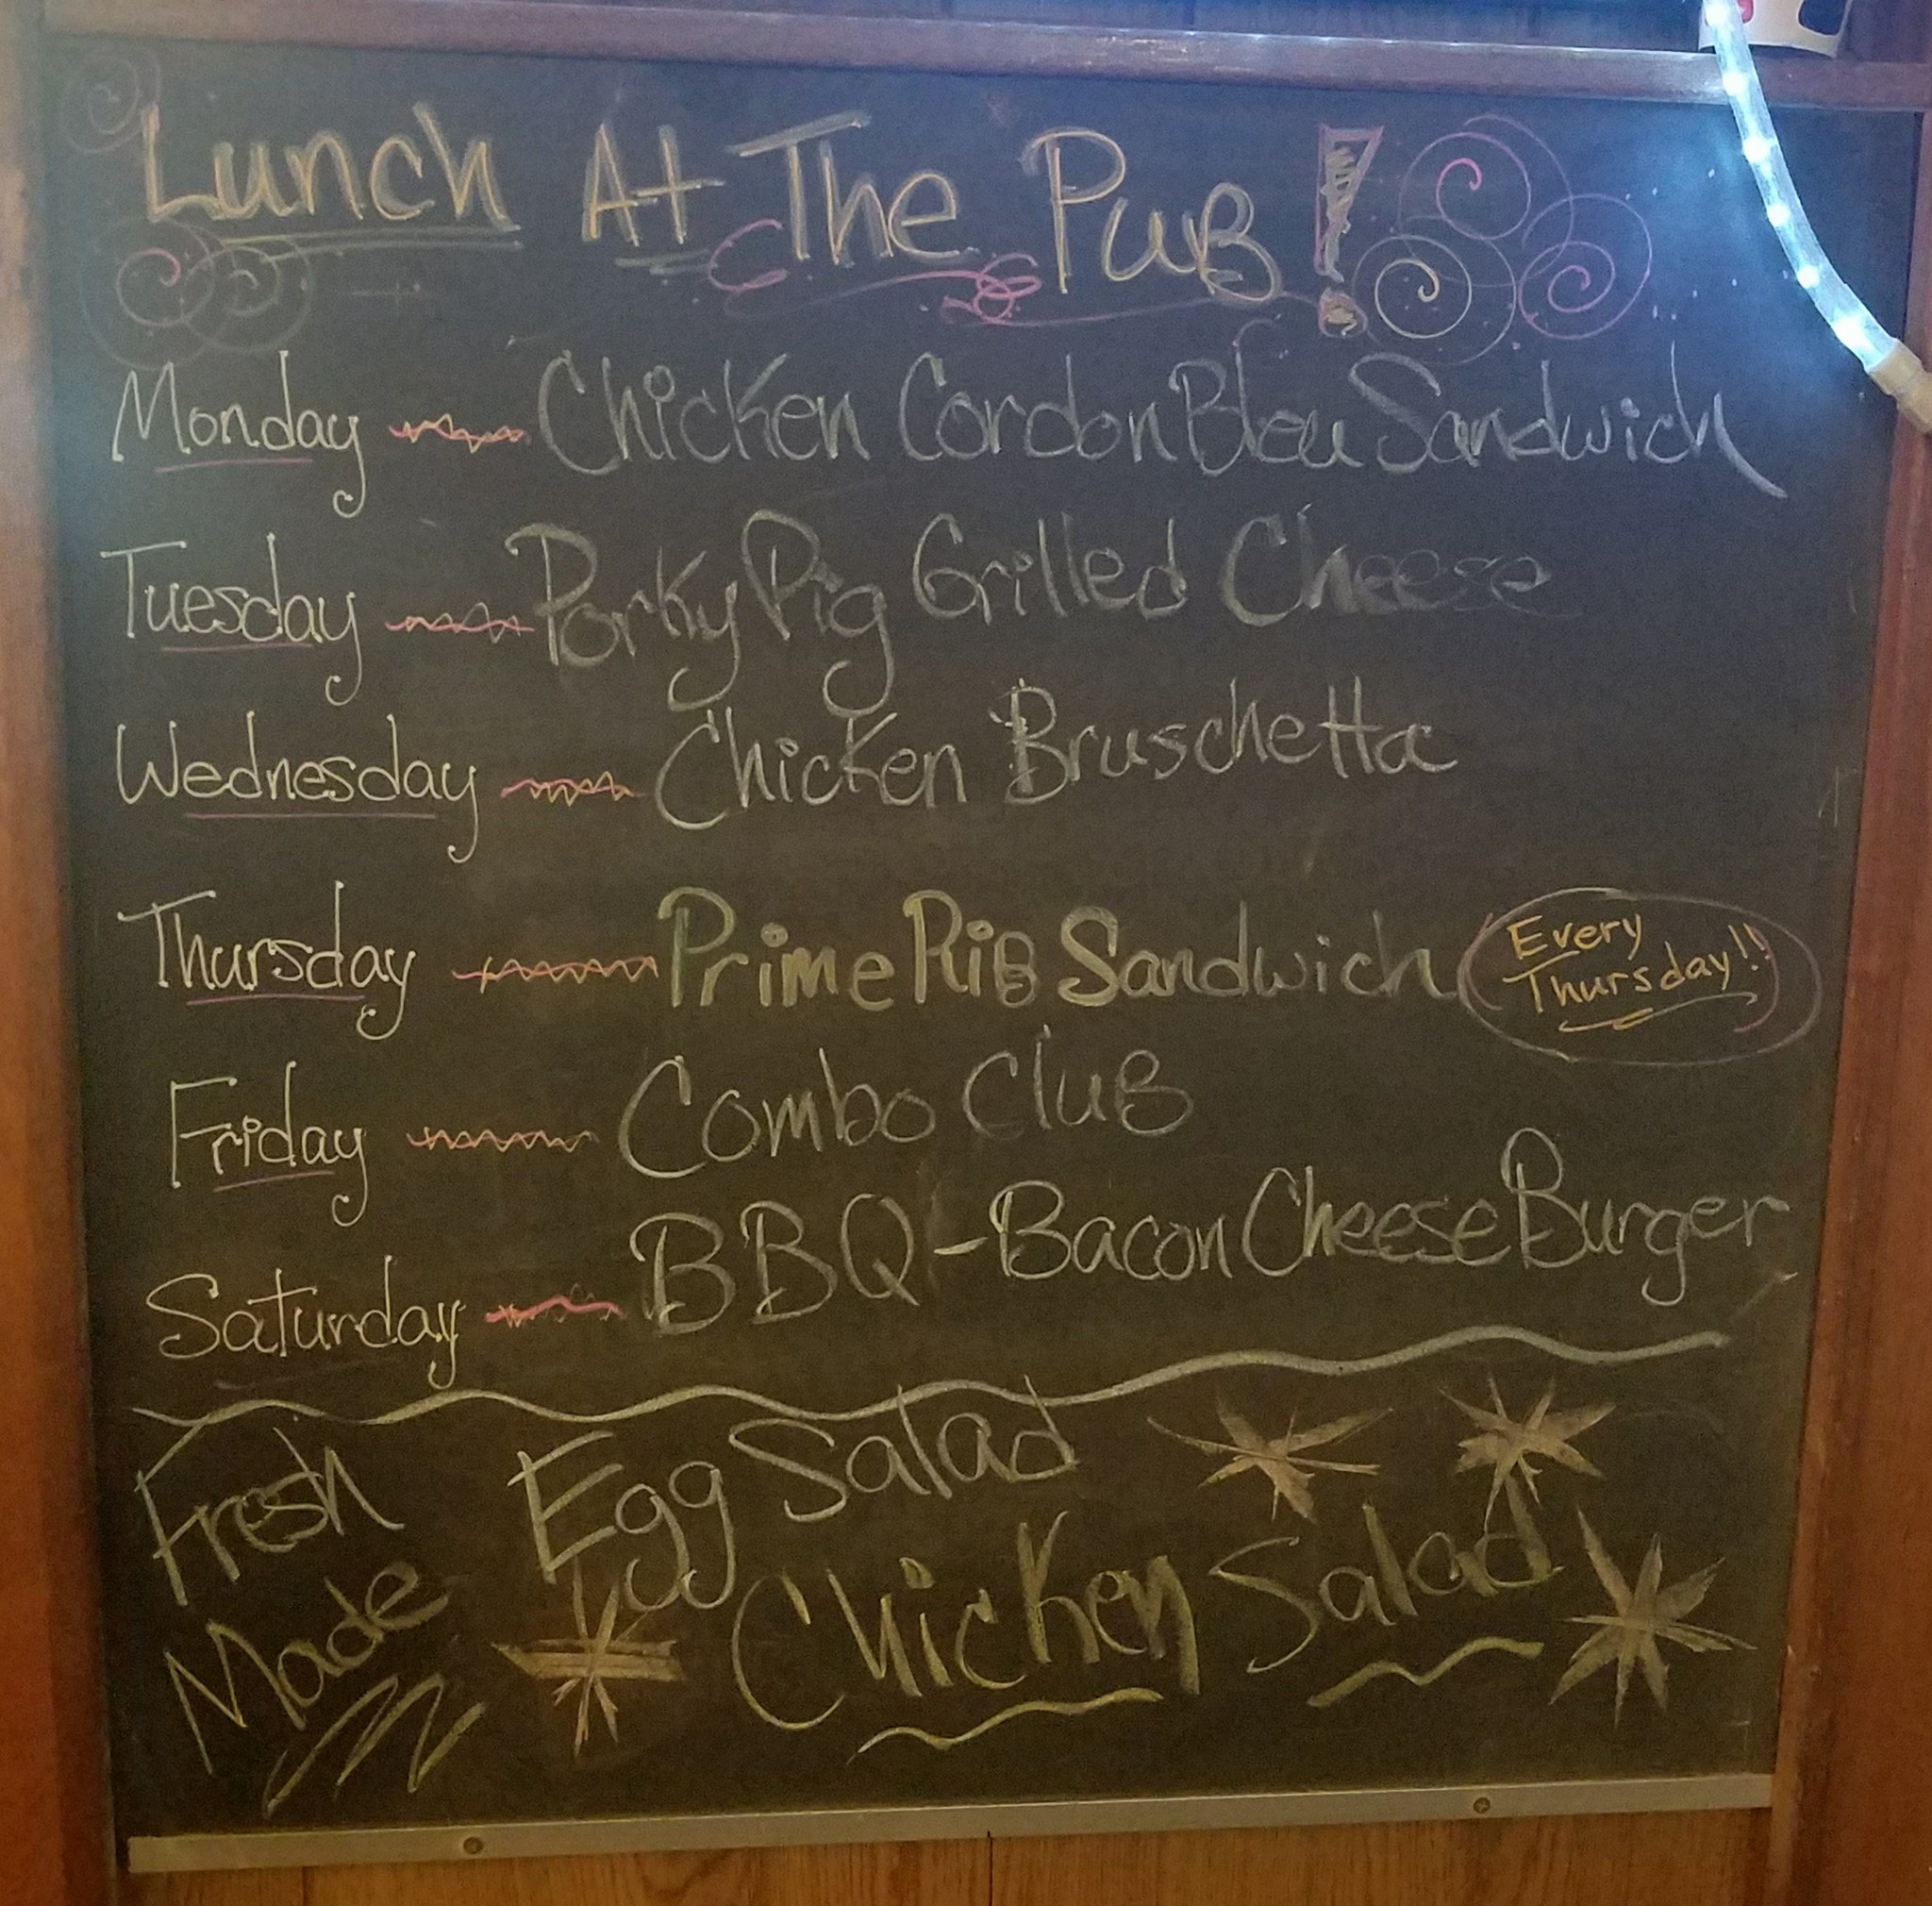 Lunch At The Pub!
Monday Chicken Cordon Bleu Sandwich
Tuesday Porky Pig Grilled Cheese
Wednesday Chicken Bruschetta
Thursday Prime Rib Sandwich Every
Thursday!!
Friday Combo Club
Saturday BBQ-Bacon Cheese Burger
Fresh Egg Salad
Made Chicken Salad